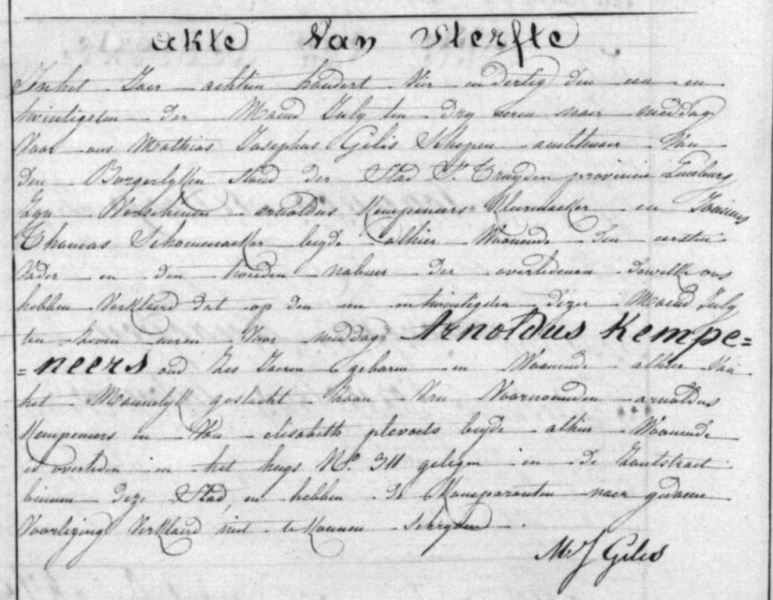 akte Van Sterfte
In het Jaer achtien hondert Vier en dertig den een en
twintigsten der Maend July ten dry uren naer middag
Voor ons Mathias Josephus Gilis Schepen ambtenaer Van
den Borgerlyken stand der Stad St Truyden provincie Limburg
Zyn Verschenen arnoldus Kempeneers Kleermaeker en Joannes
Thomas Schoenmaeker beyde alhier Woonende den eersten
Vader en den tweeden nabuer der overledenen dewelke ons
hebben Verklaerd dat op den een en twintigsten dezer Maend July
ten seven uren Voor middag Arnoldus Kempe=
=neers oud zes Jaeren geboren en Woonende alhier Van
het Mannelyk geslacht Zoon Van Voornoemden arnoldus
Kempeneers en Van elisabeth plevoets beyde alhier Woonende
is overleden in het huys No. 311 gelegen in de Zoutstraet
binnen deze Stad en hebben de Komparanten naer gedaene
Voorlezing Verklaerd niet te konnen schryven.
M J Gilis